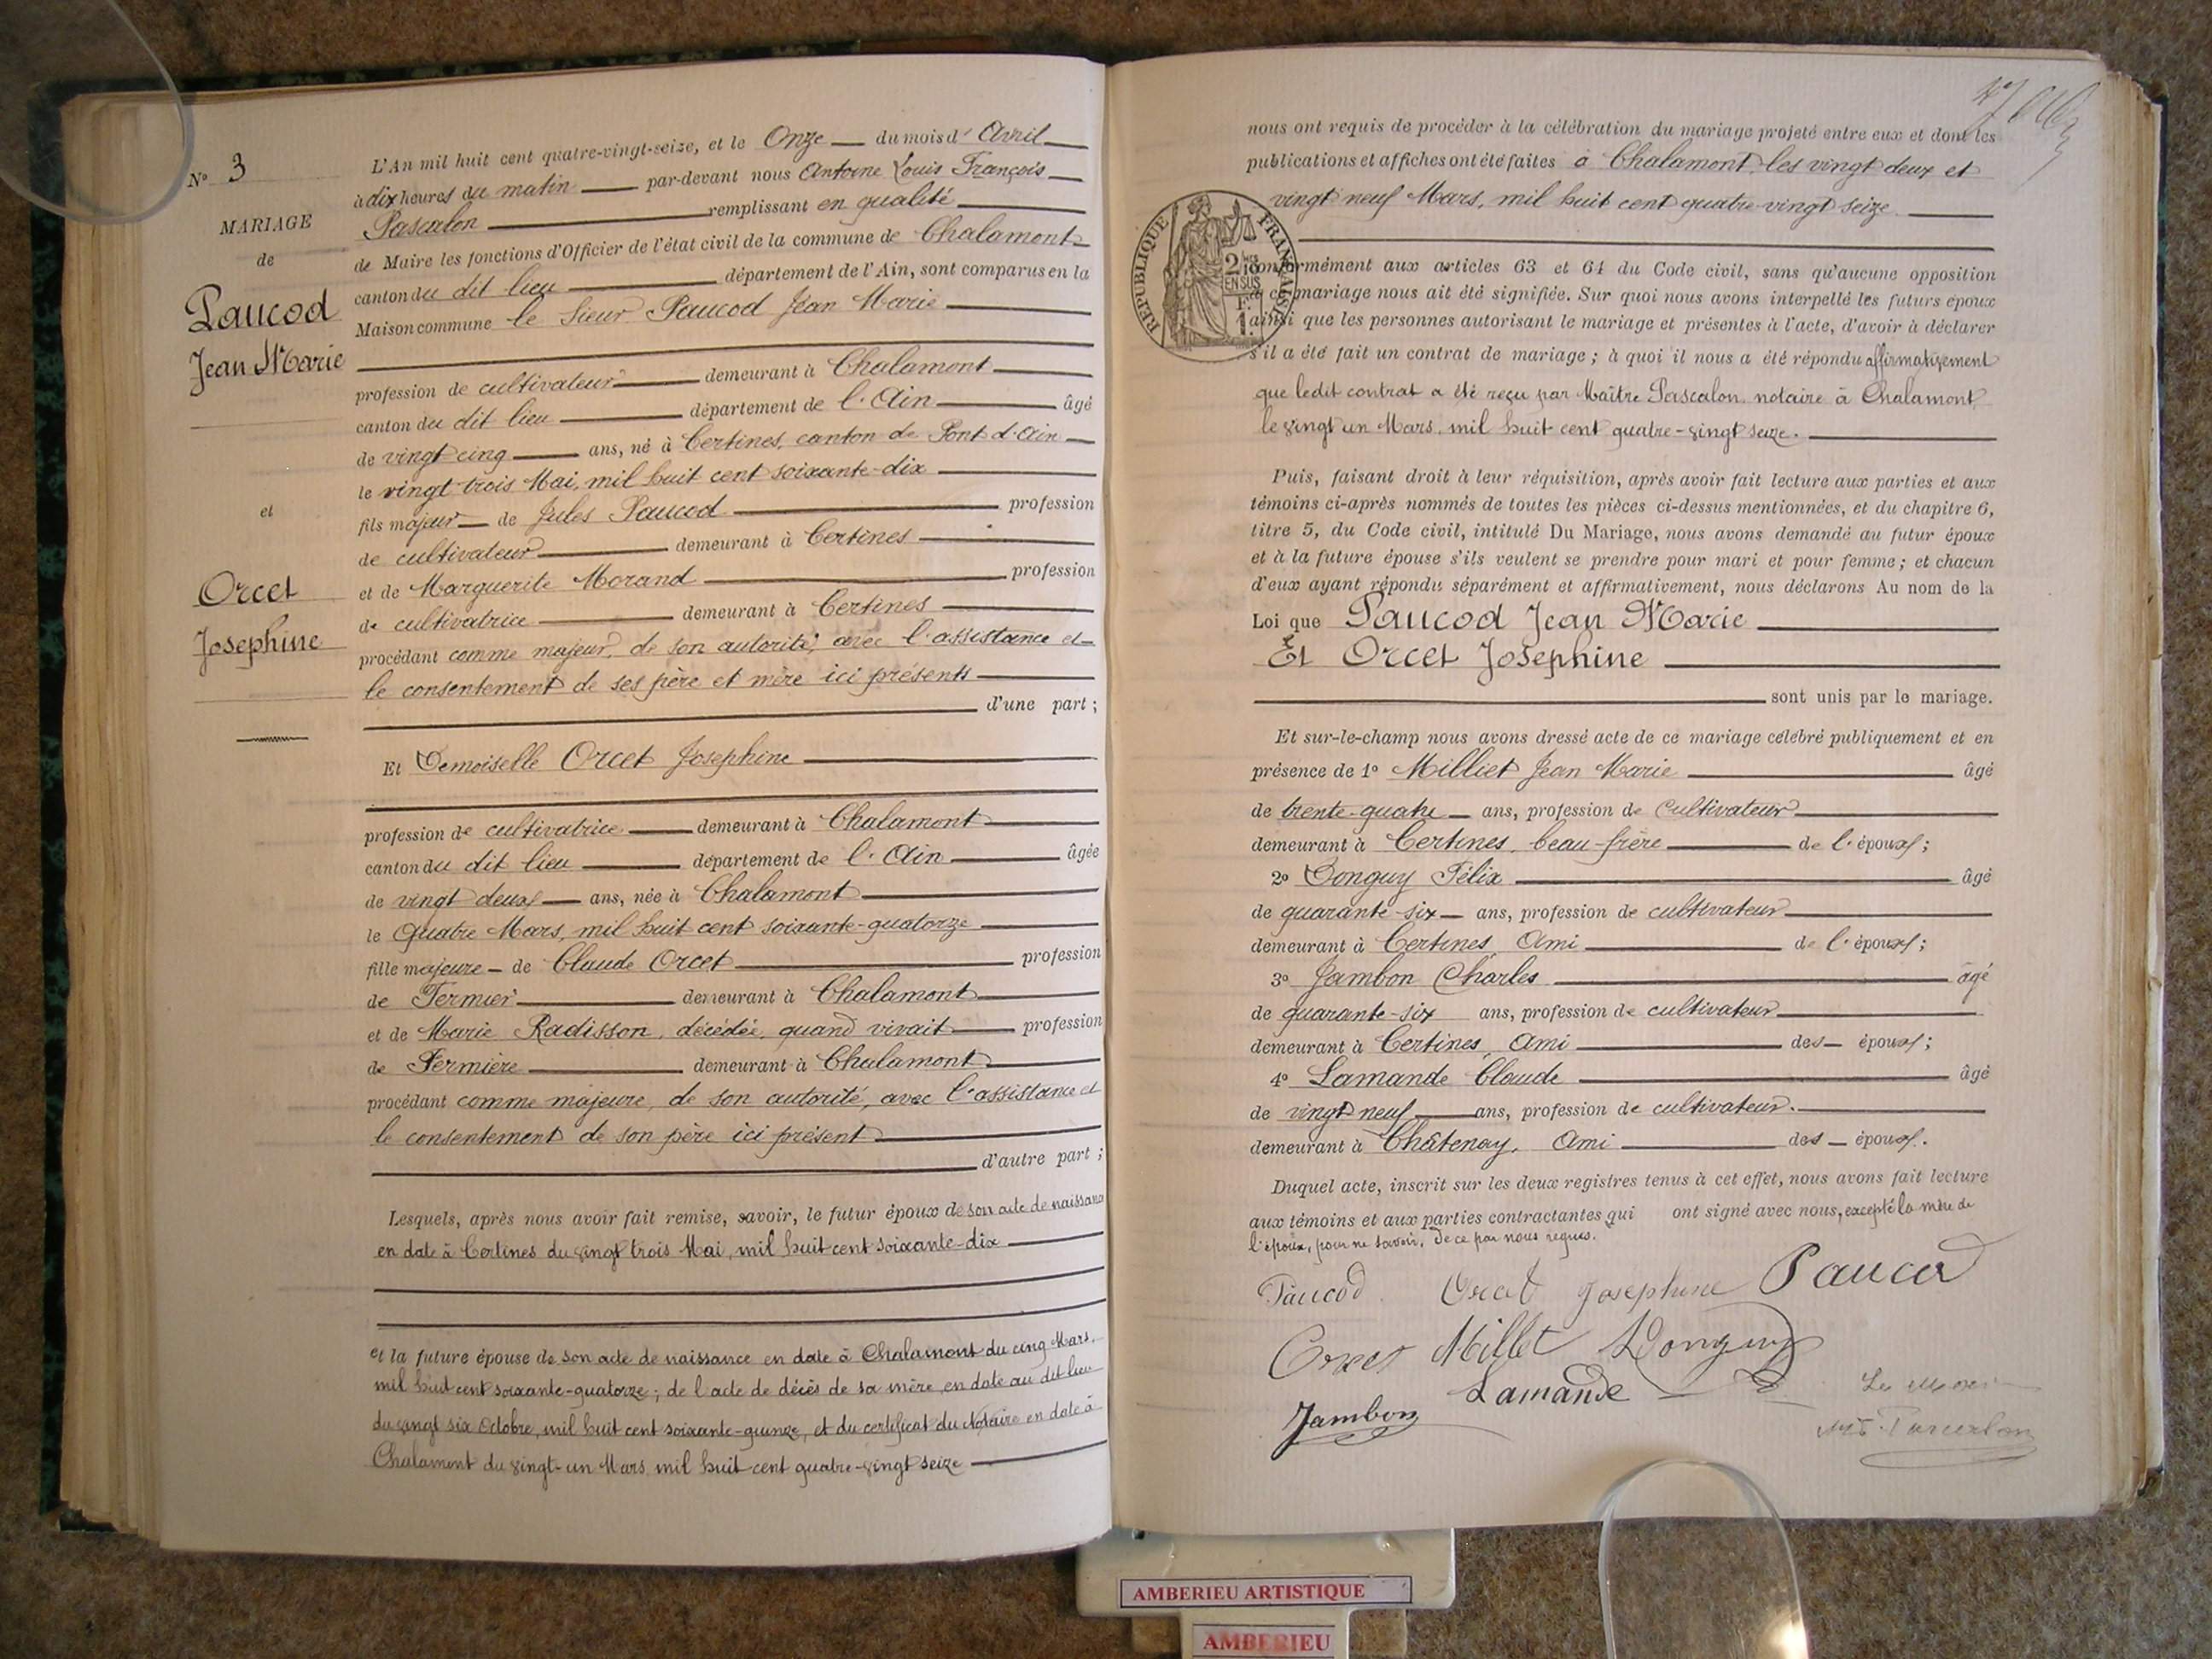 N° 3
MARIAGE
de
Paucod
Jean Marie
et
Orcet
Josephine
L'An mil huit cent quatre-vingt-seize, et le Onze du mois d' Avril
à dix heures du matin par-devant nous Antoine Louis François
Pascalon remplissant en qualité
de Maire les fonctions d'Officier de l'état civil de la commune de Chalamont
canton du dit lieu département de l'Ain, sont comparus en la
Maison commune le Sieur Paucod Jean Marie
profession de cultivateur demeurant à Chalamont
canton du dit lieu département de l'Ain âgé
de vingt cinq ans, né à Certines, canton de Pont d'Ain
le vingt trois Mai, mil huit cent soixante-dix
fils majeur de Jules Paucod profession
de cultivateur demeurant à Certines
et de Marguerite Morand profession
de cultivatrice demeurant à Certines
procédant comme majeur, de son autorité, avec l'assistance et
le consentement de ses père et mère ici présents
d'une part ;
Et Demoiselle Orcet Josephine
profession de cultivatrice demeurant à Chalamont
canton du dit lieu département de l'Ain âgée
de vingt deux ans, née à Chalamont
le Quatre Mars, mil huit cent soixante-quatorze
fille majeure de Claude Orcet profession
de Fermier demeurant à Chalamont
et de Marie Radisson, décédée, quand vivait profession
de Fermière demeurant à Chalamont
procédant comme majeure, de son autorité, avec l'assistance et
le consentement de son père ici présent
d'autre part ;
Lesquels, après nous avoir fait remise, savoir, le futur époux de son acte de naissance
en date à Certines du vingt trois Mai, mil huit cent soixante-dix
et la future épouse de son acte de naissance en date à Chalamont du cinq Mars,
mil huit cent soixante-quatorze ; de l'acte de décès de sa mère en date au dit lieu
du vingt six Octobre, mil huit cent soixante-quinze, et du certificat du Notaire en date à
Chalamont du vingt-un Mars, mil huit cent quatre-vingt seize
nous ont requis de procéder à la célébration du mariage projeté entre eux et dont les
publications et affiches ont été faites à Chalamont, les vingt deux et
vingt neuf Mars, mil huit cent quatre-vingt seize
RÉPUBLIQUE FRANÇAISE
2/10 EN SUS
conformément aux articles 63 et 64 du Code civil, sans qu'aucune opposition
à ce mariage nous ait été signifiée. Sur quoi nous avons interpellé les futurs époux
ainsi que les personnes autorisant le mariage et présentes à l'acte, d'avoir à déclarer
s'il a été fait un contrat de mariage ; à quoi il nous a été répondu affirmativement
que ledit contrat a été reçu par Maître Pascalon notaire à Chalamont
le vingt un Mars, mil huit cent quatre-vingt seize.
Puis, faisant droit à leur réquisition, après avoir fait lecture aux parties et aux
témoins ci-après nommés de toutes les pièces ci-dessus mentionnées, et du chapitre 6,
titre 5, du Code civil, intitulé Du Mariage, nous avons demandé au futur époux
et à la future épouse s'ils veulent se prendre pour mari et pour femme ; et chacun
d'eux ayant répondu séparément et affirmativement, nous déclarons Au nom de la
Loi que Paucod Jean Marie
Et Orcet Josephine
sont unis par le mariage.
Et sur-le-champ nous avons dressé acte de ce mariage célébré publiquement et en
présence de 1° Milliet Jean Marie âgé
de trente-quatre ans, profession de Cultivateur
demeurant à Certines, beau-frère de l'époux ;
2° Donguy Félix âgé
de quarante-six ans, profession de cultivateur
demeurant à Certines, Ami de l'époux ;
3° Jambon Charles âgé
de quarante-six ans, profession de cultivateur
demeurant à Certines, Ami des époux ;
4° Lamande Claude âgé
de vingt neuf ans, profession de cultivateur.
demeurant à Châtenay, Ami des époux.
Duquel acte, inscrit sur les deux registres tenus à cet effet, nous avons fait lecture
aux témoins et aux parties contractantes qui ont signé avec nous, excepté la mère de
l'époux, pour ne savoir, de ce par nous requis.
Paucod Orcet Josephine Paucod
Orcet Millet Donguy
Lamande
Jambon
Le Maire
Pascalon
AMBERIEU ARTISTIQUE
AMBERIEU